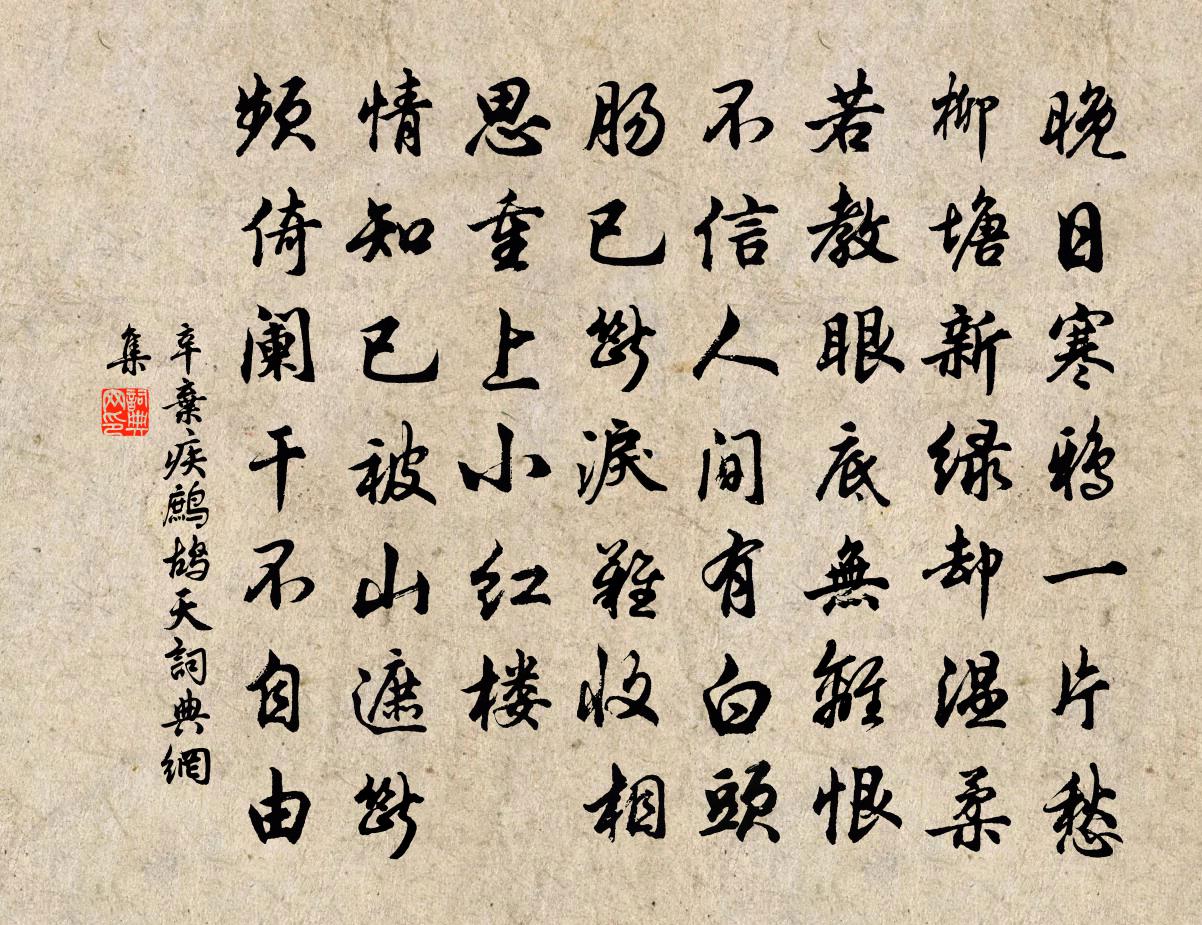 晚日寒鸦一片愁
柳塘新绿却温柔
若教眼底無離恨
不信人间有白頭
肠已断淚難收相
思重上小红楼
情知已被山遮断
频倚阑干不自由
辛棄疾鹧鸪天詞典網
集
詞典
网印